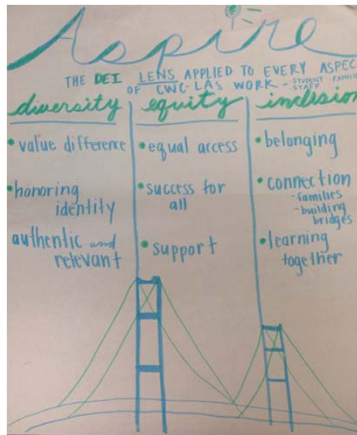 Aspire
THE DEI LENS APPLIED TO EVERY ASPEC
OF CWC-LA's WORK - STUDENT - FAMILIE
- STAFF
diversity
• value difference
• honoring
identity
authentic and
relevant
equity
• equal access
• success for
all
• support
inclusion
• belonging
• connection
- families
- building
bridges
• learning
together